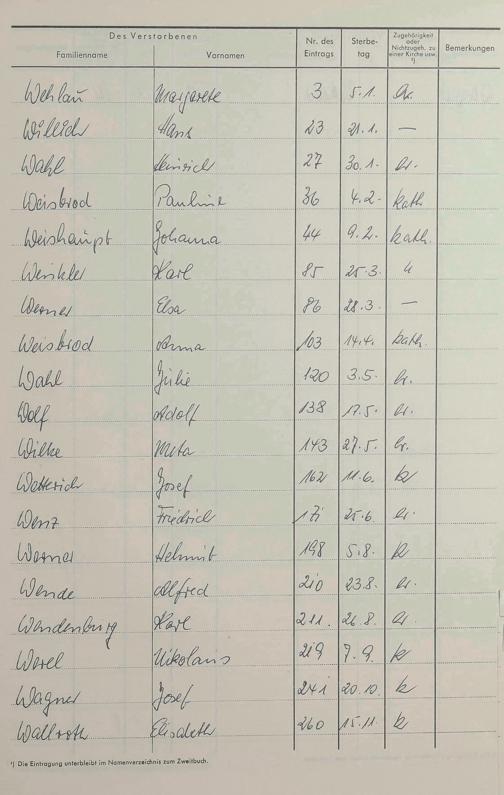 Des Verstorbenen
Familienname Vornamen Nr. des Eintrags Sterbe- tag Zugehörigkeit oder Nichtzugeh. zu einer Kirche usw. ¹) Bemerkungen
Wehlau Margarete 3 5.1. ev.
Willich Hans 23 21.1. —
Wahl Heinrich 27 30.1. ev.
Weisbrod Pauline 36 4.2. kath
Weishaupt Johanna 44 9.2. kath.
Winkler Karl 85 25.3.
Werner Elsa 86 28.3. —
Weisbrod Anna 103 14.4. kath.
Wahl Julie 120 3.5. ev.
Wolf Adolf 138 17.5. ev.
Wilke Meta 143 27.5. ev.
Wetterich Josef 162 11.6. k
Wenz Friedrich 171 25.6. ev.
Werner Helmut 198 5.8. k
Wende Alfred 210 23.8. ev.
Wendenburg Karl 211. 26.8. ev
Werel Nikolaus 219 7.9. k
Wagner Josef 241 20.10. k
Wallroth Elisabeth 260 15.11. k
¹) Die Eintragung unterbleibt im Namenverzeichnis zum Zweitbuch.